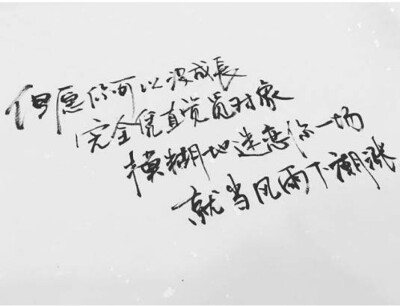 但愿你可以没成長
完全凭直觉觅对象
模糊地迷恋你一场
就当风雨下潮涨